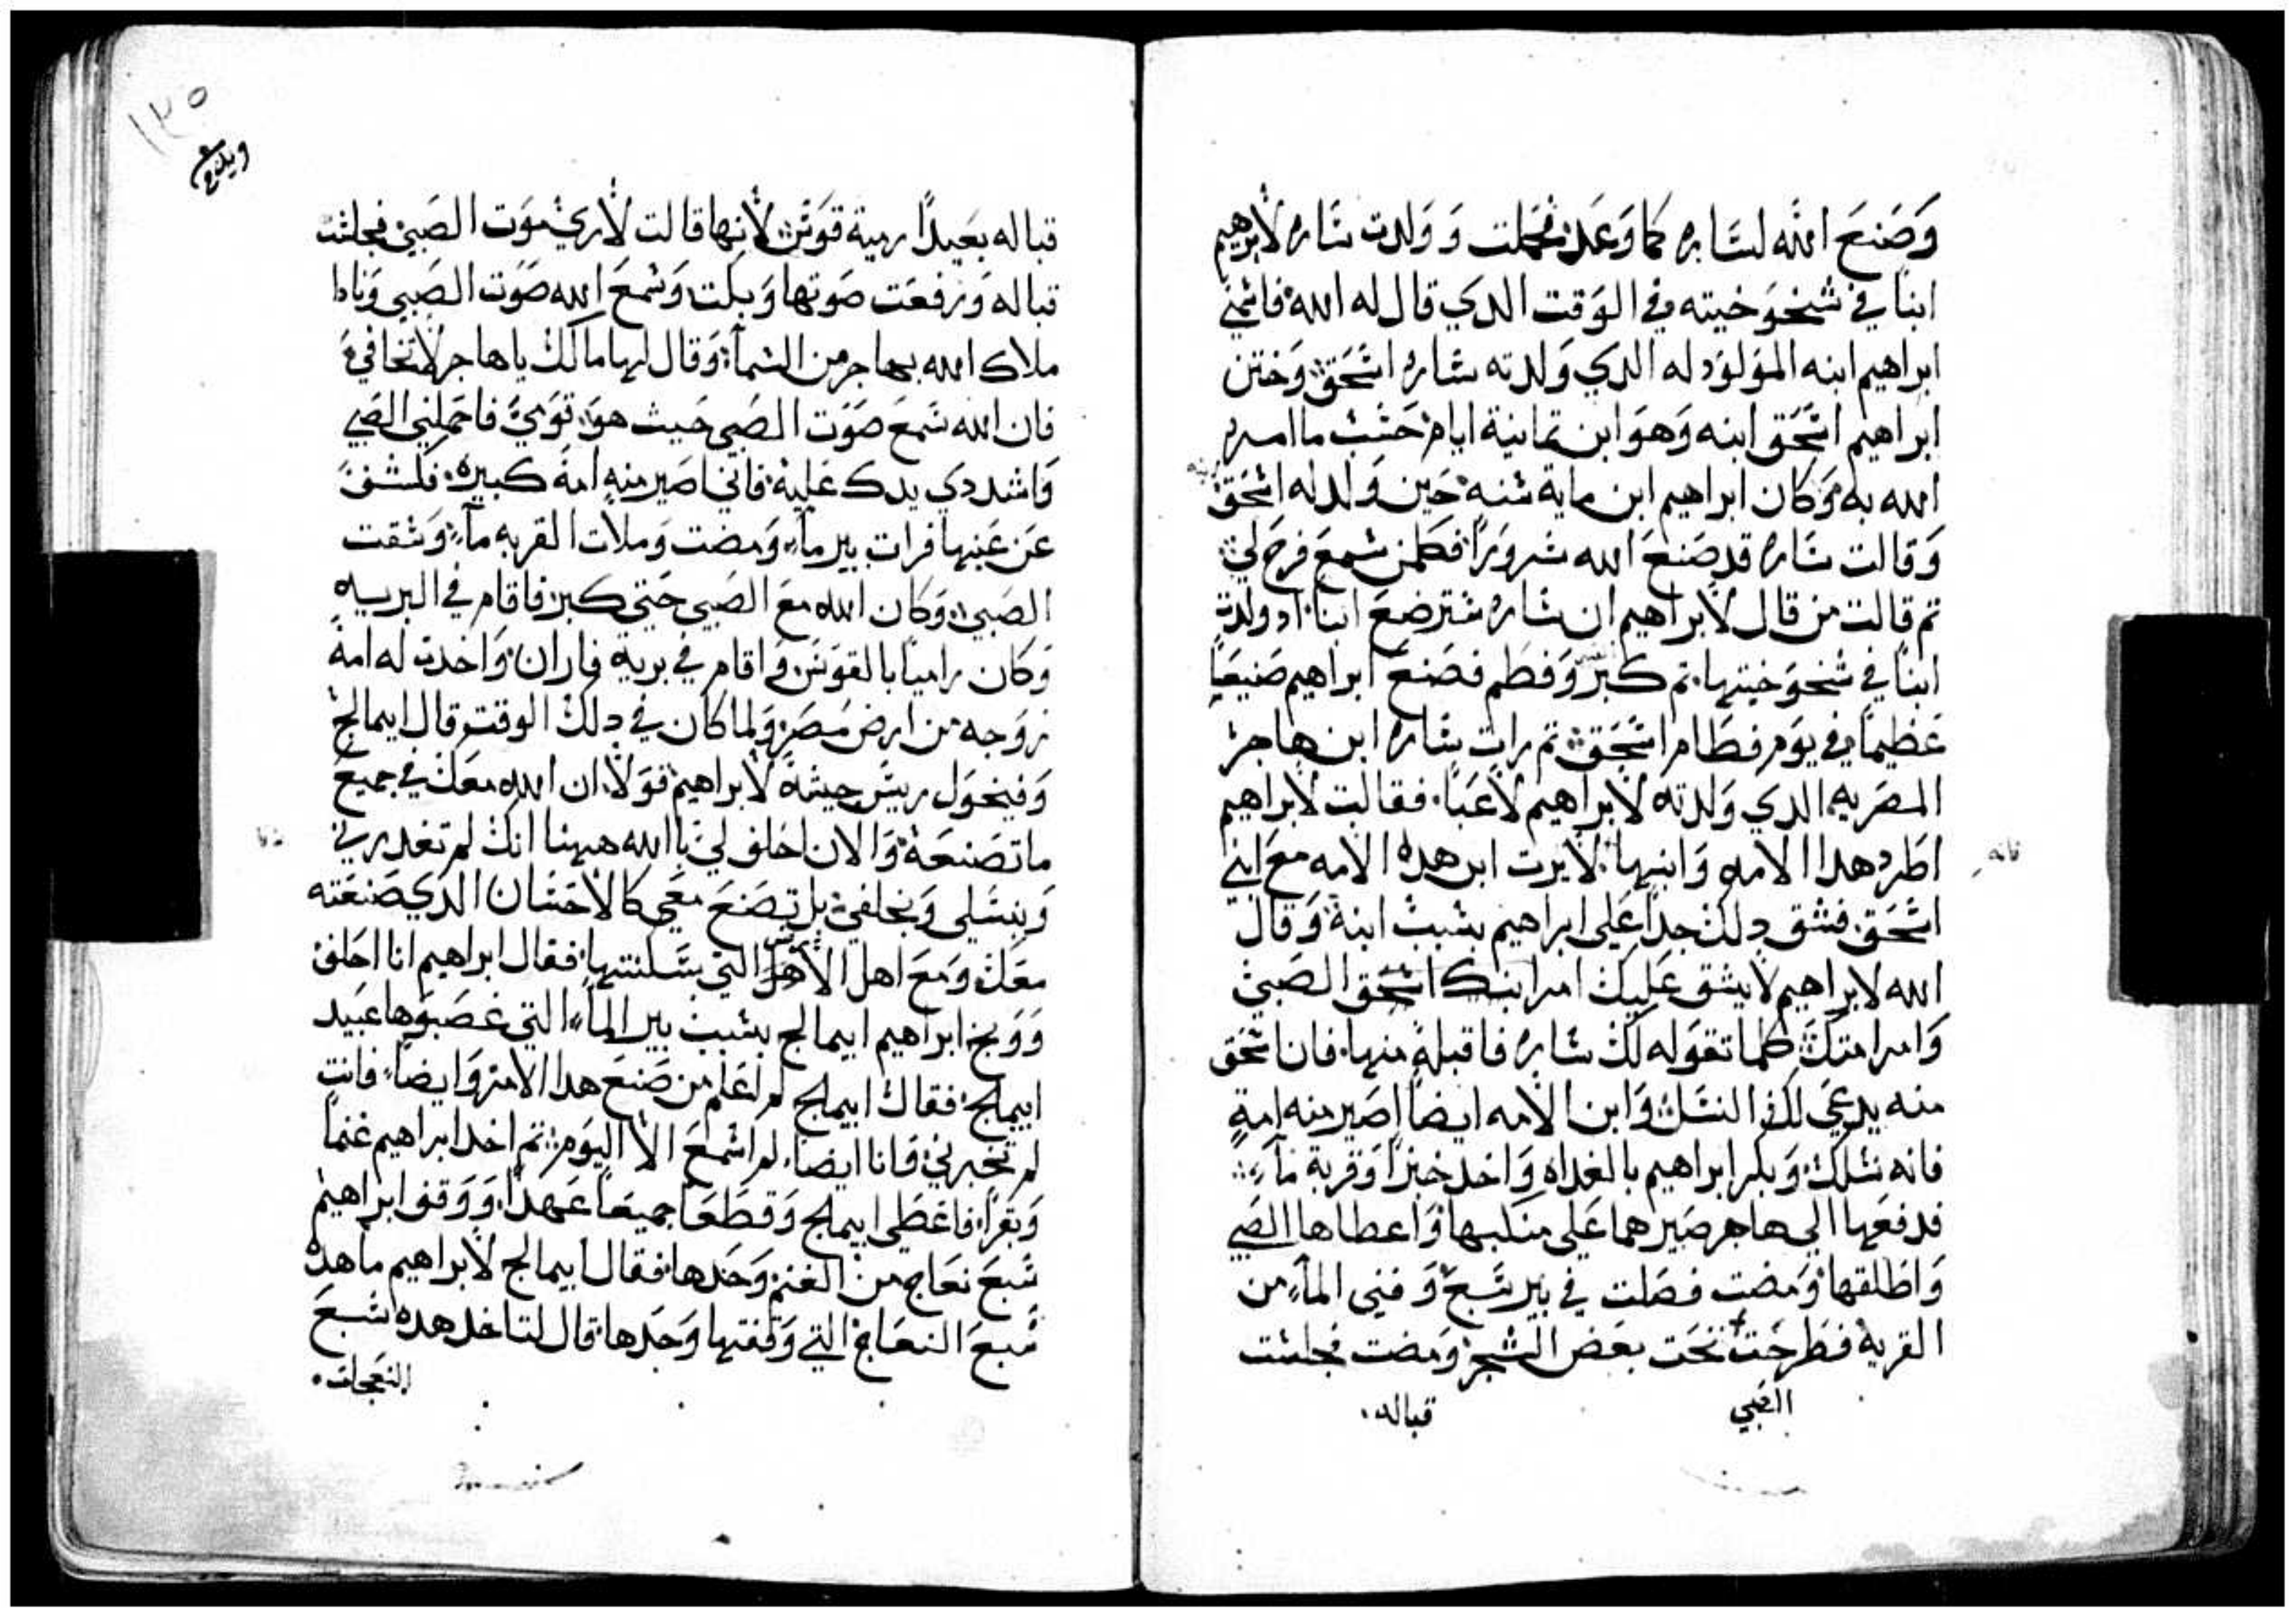 وَصَنعَ الله لسَاره كما وَعَد فحملت وَ وَلدت سَاره لابرهيم
ابنًا في شيخوَخيته في الوَقت الدي قال له الله فاسمى
ابراهيم ابنه الموَلوَد له الدي وَلدته سَاره اسحَق وَختن
ابراهيم اسحَق ابنه وَهوَ ابن تمانية ايام حَسَب ما امره
الله به وَكان ابراهيم ابن ماية سنه حَين وَلد له اسحَق
وَقالت سَاره قد صَنعَ الله سروَرًا فكلمن سمعَ فرح لي
تم قالت من قال لابراهيم ان سَاره سترضعَ ابنا اد ولدت
ابنًا في شيخوَخيتها تم كبر وَفطم فصَنعَ ابراهيم صَنيعًا
عَظيمًا في يوَم فطام اسحَق تم رات سَاره ابن هاجر
المصَريه الدي وَلدته لابراهيم لاعَبًا فقالت لابراهيم
اطرد هدا الامه وَابنها لا يرت ابن هده الامه معَ ابني
اسحَق فشق دلك جدًا عَلى ابراهيم بسبب ابنه وَقال
الله لابراهيم لا يشق عَليك امر ابنك اسحق الصَبي
وَامر امتك كلما تقوَله لك سَاره فاقبله منها فان اسحَق
منه يدعَي لك النسَل وَابن الامه ايضًا اصَير منه امة
فانه نسلك وَبكر ابراهيم بالغداه وَاخد خبزًا وَقربة مآء
فدفعَها الى هاجر صَيرهما عَلى منكبها وَاعطاها الصَبي
وَاطلقها وَمضت فضلت في بير سَبعَ وَفني المآء من
القربة فطرحَت تحَت بعَض الشجر وَمضت فجلست
الصَبي
قباله
قباله بعَيدًا رمية قوَس لانها قالت لا اري موَت الصَبي فجلست
قباله وَرفعَت صَوتها وَبكت وَسمعَ الله صَوت الصَبي وَنادا
ملاك الله بهاجر من السَمآء وَقال لها مالك ياهاجر لا تخافي
فان الله سَمعَ صَوَت الصَبي حَيث هوَ قوَمي فاحَملني الصَبي
وَاشددي يدك عَليه فاني اصَير منه امة كبيره فكشف
عَن عَينها فرات بير مآء وَمضت وَملات القربه مآء وَسَقت
الصَبي وَكان الله معَ الصَبي حَتى كبر فاقام في البريه
وَكان راميًا بالقوَس وَاقام في برية فاران وَاخدت له امه
زوَجه من ارض مصَر وَلما كان في دلك الوقت قال ابيمالج
وَفيخوَل ريسَ جيشه لابراهيم قوَلا ان الله معَك في جميعَ
ما تصَنعَه وَالان احَلف لي باالله ههنا انك لم تغدر بي
وَبنسَلي وَبخلفي بل تصَنعَ معَي كالاحَسَان الدي صَنعَته
معَك وَمعَ اهل الارض التي سَكنتها فقال ابراهيم انا احَلف
وَوَبخ ابراهيم ابيمالج بسَبب بير المآء التي غصَبوَها عَبيد
ابيمالج فقال ابيمالج لم اعَلم من صَنعَ هدا الامر وَايضًا فانت
لم تخبرني وَانا ايضا لم اسَمعَ الا اليوَم تم اخد ابراهيم غنمًا
وَبقرًا فاعَطى ابيمالج وَقطعَا جميعًا عَهدًا وَوَقف ابراهيم
سَبعَ نعَاج من الغنم وَحَدها فقال ابيمالج لابراهيم ما هده
سَبعَ النعَاج التي وَقفتها وَحَدها قال لتاخد هده سَبعَ
النعَجات